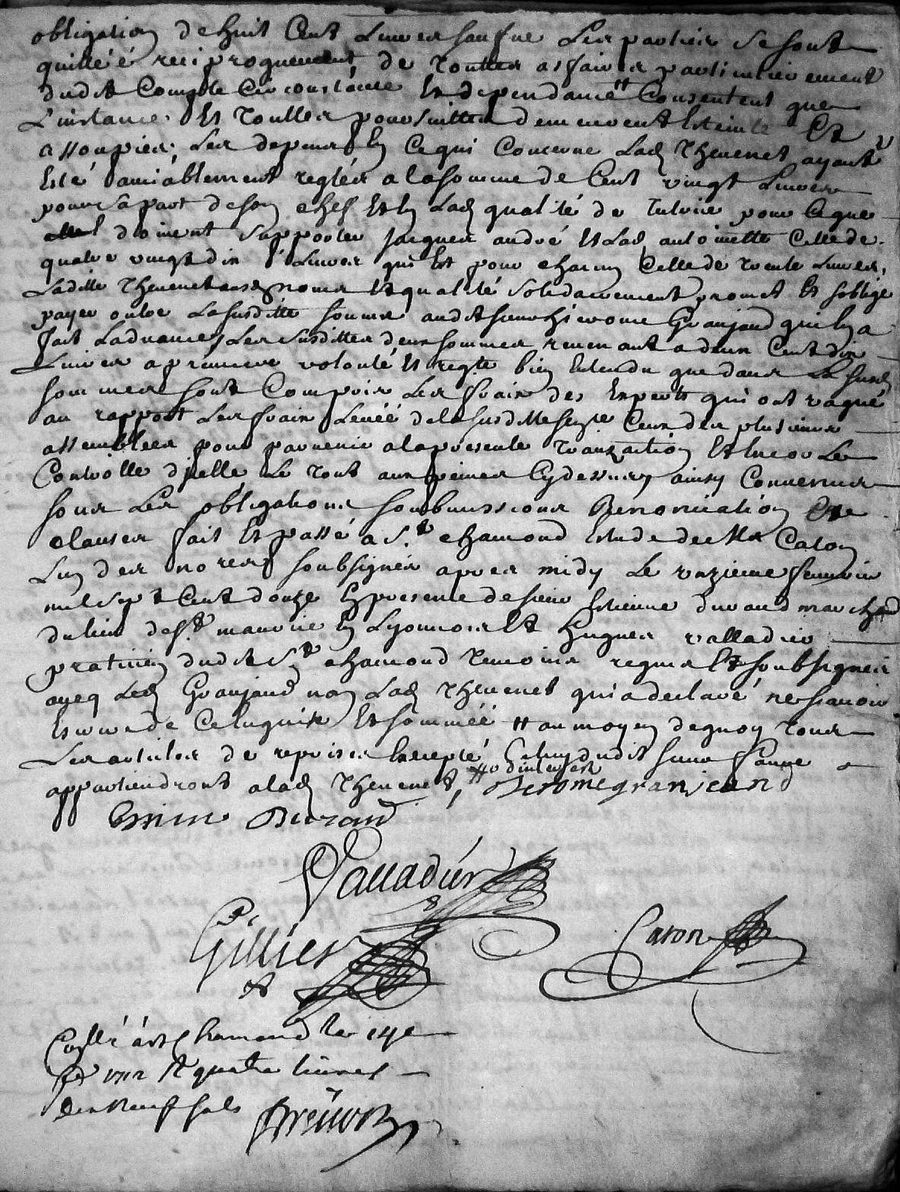 obligation de huit Cent Livres sauf que Les parties se sont
quitté é reciproquement de touttes affaires particulierement
dudit Compte Circonstance Et dependance Consentent que
L'instance Et touttes poursuittes demeurent Esteinte Et
assoupies Les depens En Ce qui Concerne Lad Thevenet ayant
Esté amiablement reglés a la somme de Cent vingt Livres
pour sa part de son chef Et En Lad qualité de Tutrice pour Ce que
doivent Supporter Jacques andré Et Lad antoinette Celle de
quatre vingt dix Livres qui Est pour chacun Celle de trente Livres,
Laditte Thevenet aux noms Et qualité solidairement promet Et soblige
payer outre La susditte somme audit sieur hierome Granjand qui En a
fait Ladvance Les susdittes deux sommes revenant a deux Cent dix
Livres a premiere volonté Et reste bien Entendu que dans La susd
somme sont Compris Les frais des Experts qui ont vaqué
au rapport Les frais Levée de la susditte Ceux des plusieurs
assemblées pour parvenir a la presente Transaction Et Encor Le
Controlle d'icelle Le tout aux peines Cy dessus ainsy Convenues
sous Les obligations soubmissions Renonciation Et
clauses fait Et passé a St chamond Estude de Me Caron
L'un des nores soubsignés apres midy Le unzieme fevrier
mil sept Cent douze En presence de sieur Estienne durand march
du lieu de St maurice En Lyonnois Et hugues valladier
praticien dudit St chamond temoins requis Et soubsignes
avec Led Granjand non Lad Thevenet qui a declaré ne scavoir
Escrire de Ce Enquise Et sommée au moyen de quoy tous
Les articles de reprises Excepté Celuy dudit sieur
appartiendront a lad Thevenet, Jerome granjean d
Durand
Valladier
Gillier
Caron
Collé a st Chamond le 14e
fer 1712 quatre livres
dix neuf sols